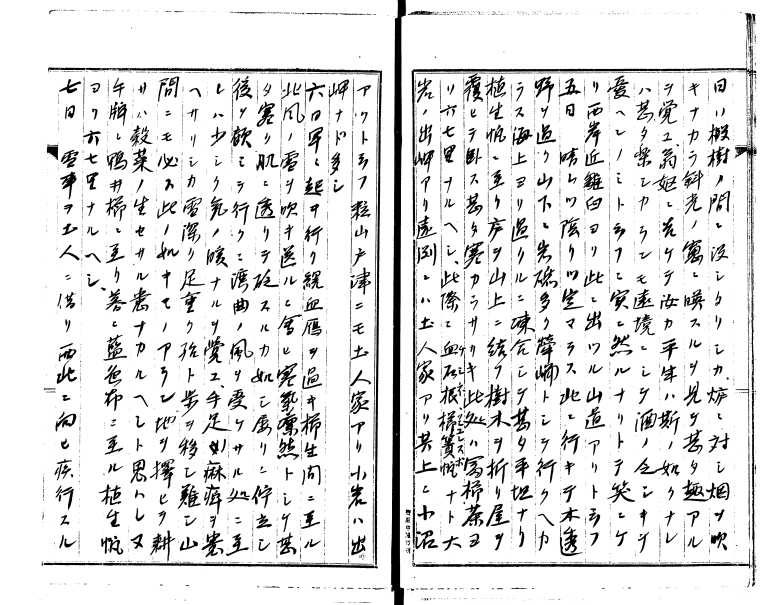 日ハ樹ノ間ニ没シタリシカ炉ニ対シ烟ヲ吹
キナカラ斜光ノ窓ニ映スルヲ見ル甚タ趣アル
ヲ覚ユ翁姫ニ告ケテ汝カ平生ハ斯ノ如クナレ
ハ甚タ楽シカランモ遠境ニシテ酒ノ乏シキヲ
憂ヘンノミト云フニ実ニ然ルナリトテ笑ニケ
リ西岸近雞臼ヨリ此ニ出ツル山道アリト云フ
五日 晴レツ陰リツ定マラス此ニ行キテ木
野ヲ過ク山下ニ岩礁多ク トシテ行クヘカ
ラス海上ヨリ過クルニ凍合シテ甚タ平坦ナリ
植生帆ニ至リ庐ヲ山上ニ結ヒ樹木ヲ折リ屋ヲ
覆ヒテ臥ス甚タ寒カラサリキ此処ハ冨楊茶ヨ
リ六七里ナルヘシ此際ニ血石振楊簀帆ナト大
岩ノ出岬アリ遠別ニハ土人家アリ其上ニ小沼
アツト云フ粒山戸津ニモ土人家アリ小岩ハ出
岬ナド多シ
六日 早ニ起キ行ク綱血鴈ヲ過キ楊生間ニ至ル
此風ノ雪ヲ吹キ送ルニ會ヒ寒氣凛然トシテ甚
タ寒ク肌ニ透リテ砭スルカ如シ屡リニ佇立シ
後ヲ顧ミテ行クニ湾曲ノ風ヲ受ケサル処ニ至
レハ少シク気ノ暖ナルヲ覚ユ手足如麻痺ヲ患
ヘサリシカ雪深ク足重ク殆ト歩ヲ移シ難シ山
間ニモ必ス此ノ如キモノアラン地ヲ擇ヒテ耕
サハ穀菜ノ生セサル患ナカルヘシト思ハレヌ
午牌ニ鴨井櫛ニ至リ暮ニ藍色布ニ至ル植生帆
ヨリ六七里ナルヘシ
七日 雪車ヲ土人ニ借リ西北ニ向ヒ疾行スル